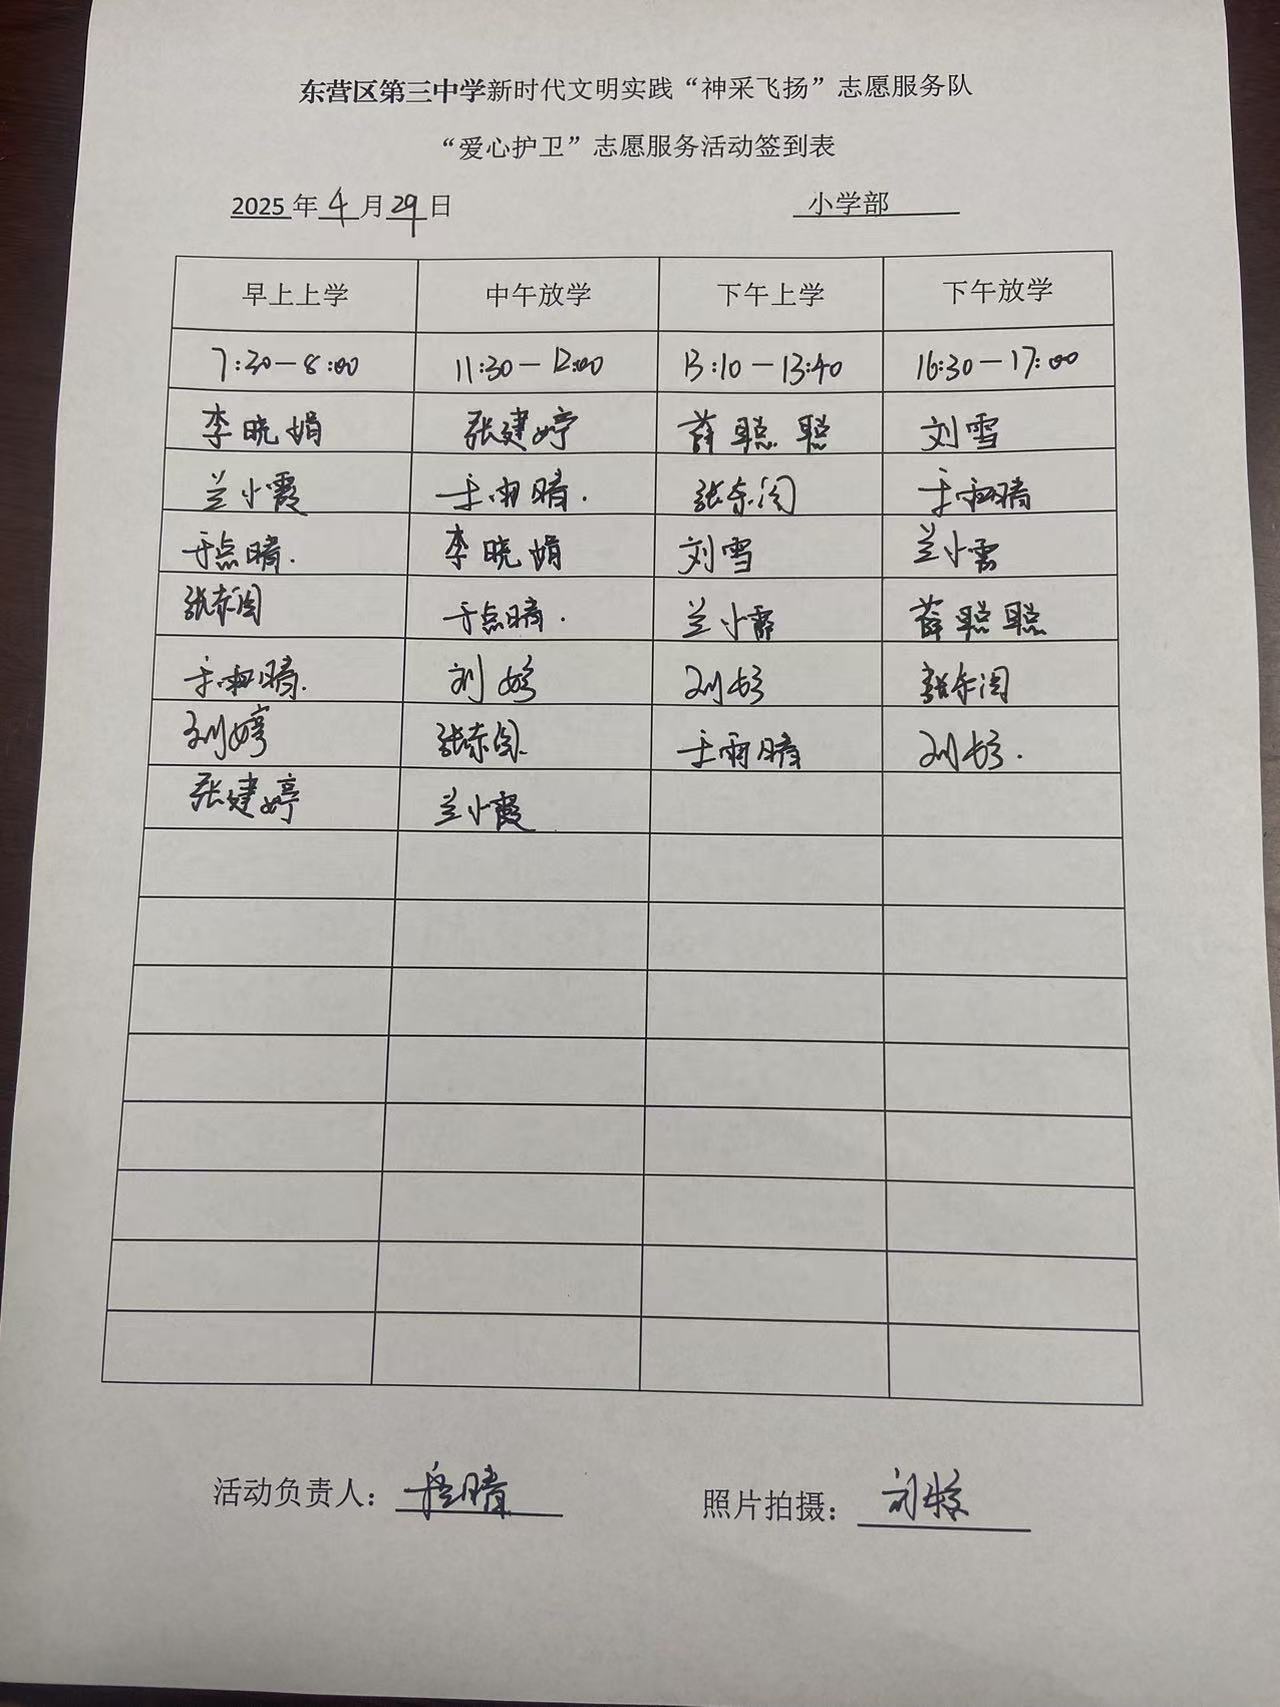 东营区第三中学新时代文明实践“神采飞扬”志愿服务队
“爱心护卫”志愿服务活动签到表
2025 年 4 月 29 日 小学部
早上上学 中午放学 下午上学 下午放学
7:30—8:00 11:30—12:00 13:10—13:40 16:30—17:00
李晓娟 张建婷 薛聪聪 刘雪
兰小霞 于雨晴. 张东闰 于雨晴
于点晴. 李晓娟 刘雪 兰小霞
张东闰 于点晴. 兰小霞 薛聪聪
于雨晴. 刘婷 刘婷 张东闰
刘婷 张东闰 于雨晴 刘婷.
张建婷 兰小霞
活动负责人： 照片拍摄： 刘婷